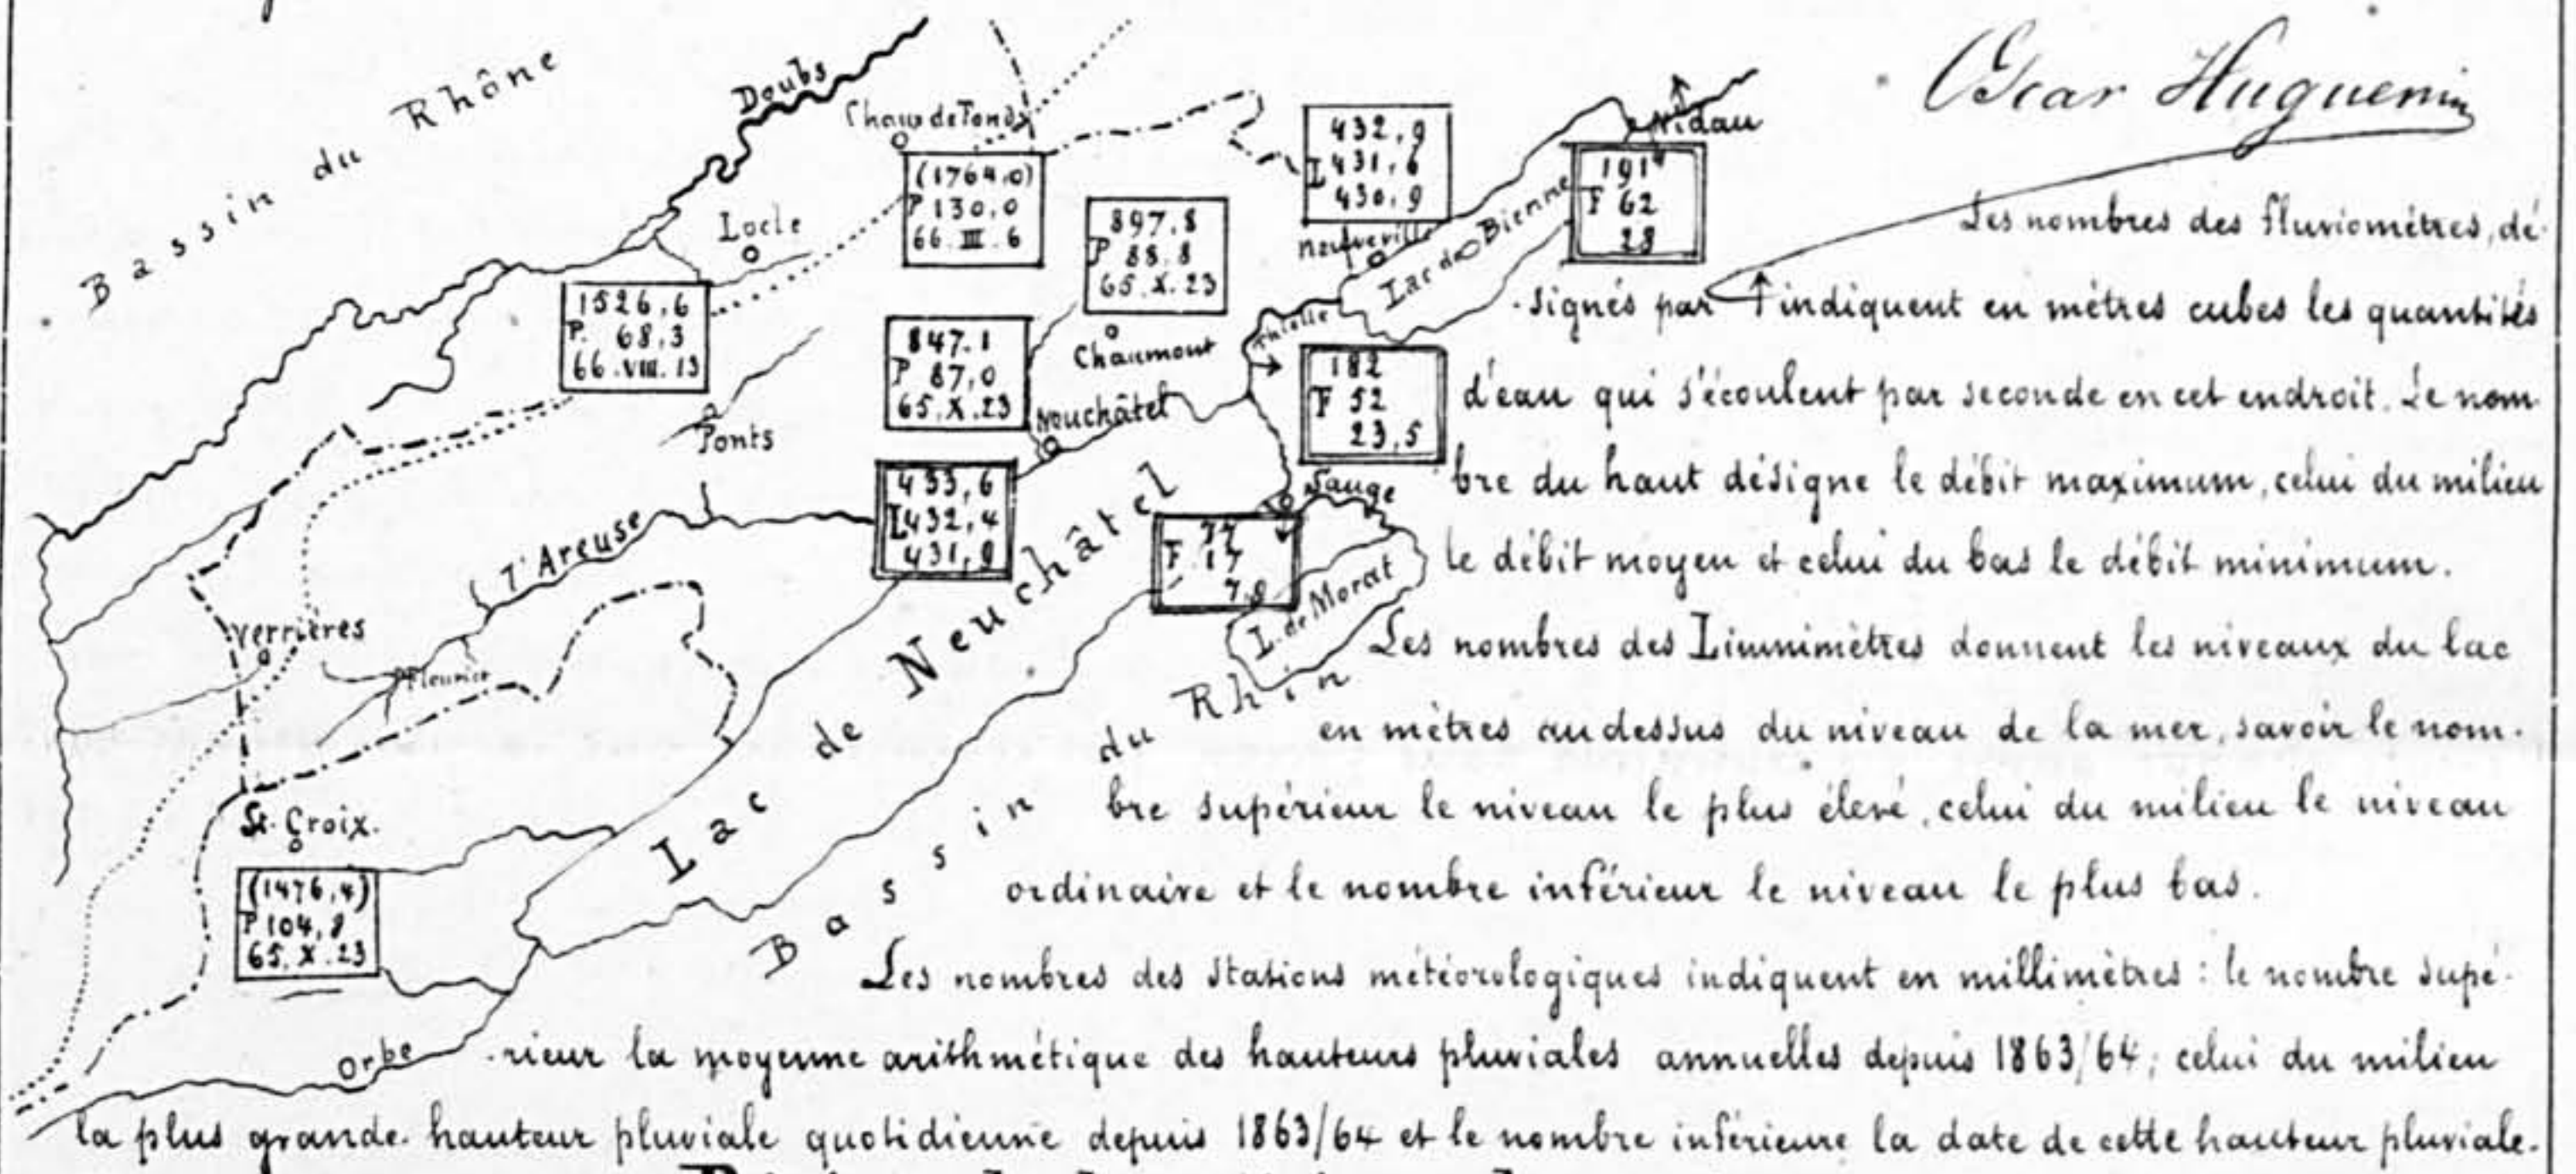 Oscar Huguenin
Bassin du Rhône
Doubs
Chaux de Fonds
Nidau
432,9
L 431,6
430,9
191
F 62
28
(1764,0)
P 130,0
66.III.6
Locle
897,8
P 88,8
65.X.23
Neuveville
Lac de Bienne
1526,6
P. 68,3
66.VIII.13
847.1
P 87,0
65.X.23
Chaumont
Thielle
182
F 52
23,5
Ponts
Neuchâtel
433,6
L 432,4
431,9
Sauge
77
F 17
7,8
l'Areuse
L. de Morat
Verrières
Fleurier
Lac de Neuchâtel
Bassin du Rhin
St. Croix.
(1476,4)
P 104,8
65.X.23
Orbe
Les nombres des fluviomètres, dé-
-signés par ↑ indiquent en mètres cubes les quantités
d'eau qui s'écoulent par seconde en cet endroit. Le nom-
bre du haut désigne le débit maximum, celui du milieu
le débit moyen et celui du bas le débit minimum.
Les nombres des Limnimètres donnent les niveaux du lac
en mètres au dessus du niveau de la mer, savoir le nom-
bre supérieur le niveau le plus élevé, celui du milieu le niveau
ordinaire et le nombre inférieur le niveau le plus bas.
Les nombres des stations météorologiques indiquent en millimètres : le nombre supé-
-rieur la moyenne arithmétique des hauteurs pluviales annuelles depuis 1863/64; celui du milieu
la plus grande hauteur pluviale quotidienne depuis 1863/64 et le nombre inférieure la date de cette hauteur pluviale.